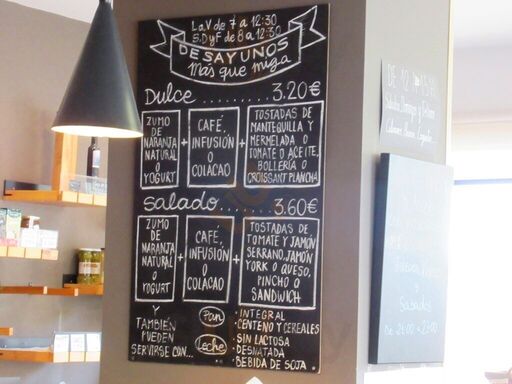 L a V de 7 a 12:30
S, D y F de 8 a 12:30
DESAYUNOS
Más que miga
Dulce ........... 3.20€
ZUMO
DE
NARANJA
NATURAL
O
YOGURT
+
CAFÉ,
INFUSIÓN
O
COLACAO
+
TOSTADAS DE
MANTEQUILLA Y
MERMELADA O
TOMATE O ACEITE,
BOLLERÍA O
CROISSANT PLANCHA
Salado ....... 3.60€
ZUMO
DE
NARANJA
NATURAL
O
YOGURT
+
CAFÉ,
INFUSIÓN
O
COLACAO
+
TOSTADAS DE
TOMATE Y JAMÓN
SERRANO, JAMÓN
YORK O QUESO,
PINCHO O
SANDWICH
Y
TAMBIÉN
PUEDEN
SERVIRSE CON...
Pan
· INTEGRAL
CENTENO Y CEREALES
Leche
· SIN LACTOSA
· DESNATADA
· BEBIDA DE SOJA
Sábados